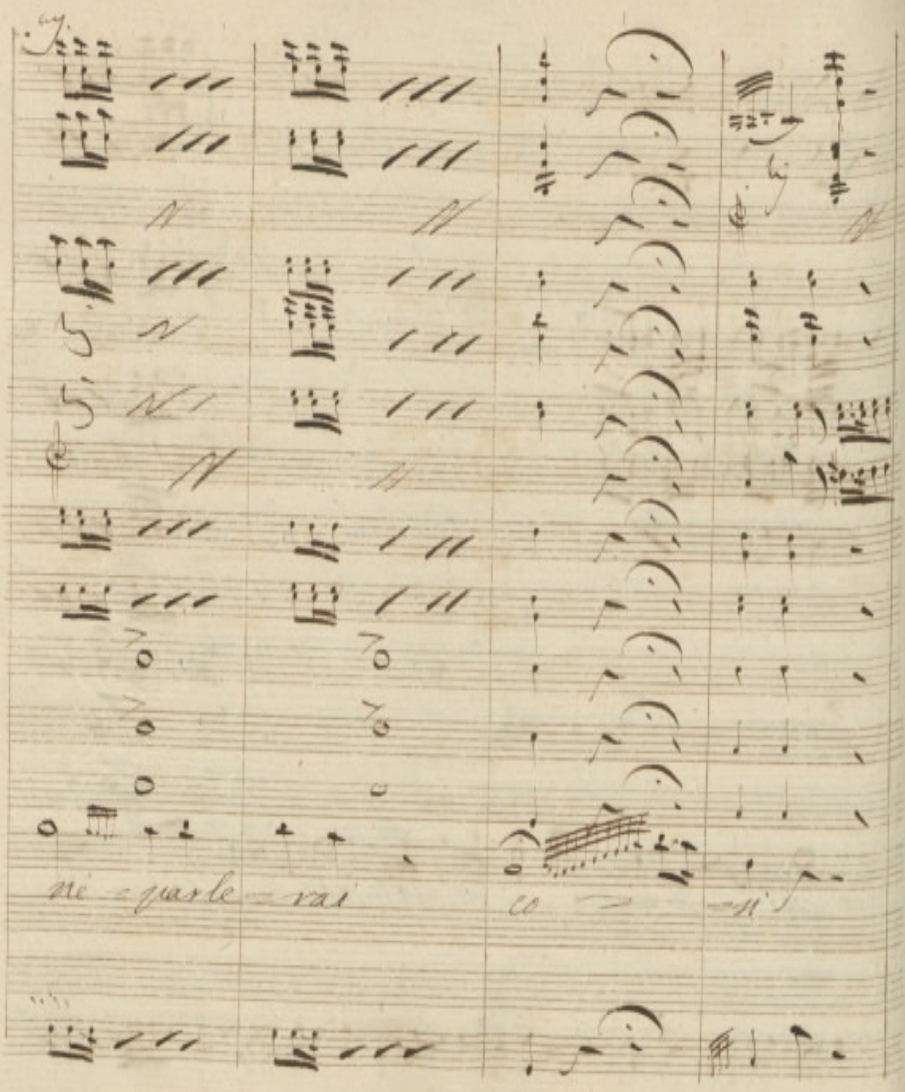 ni - parle - rai co - - si